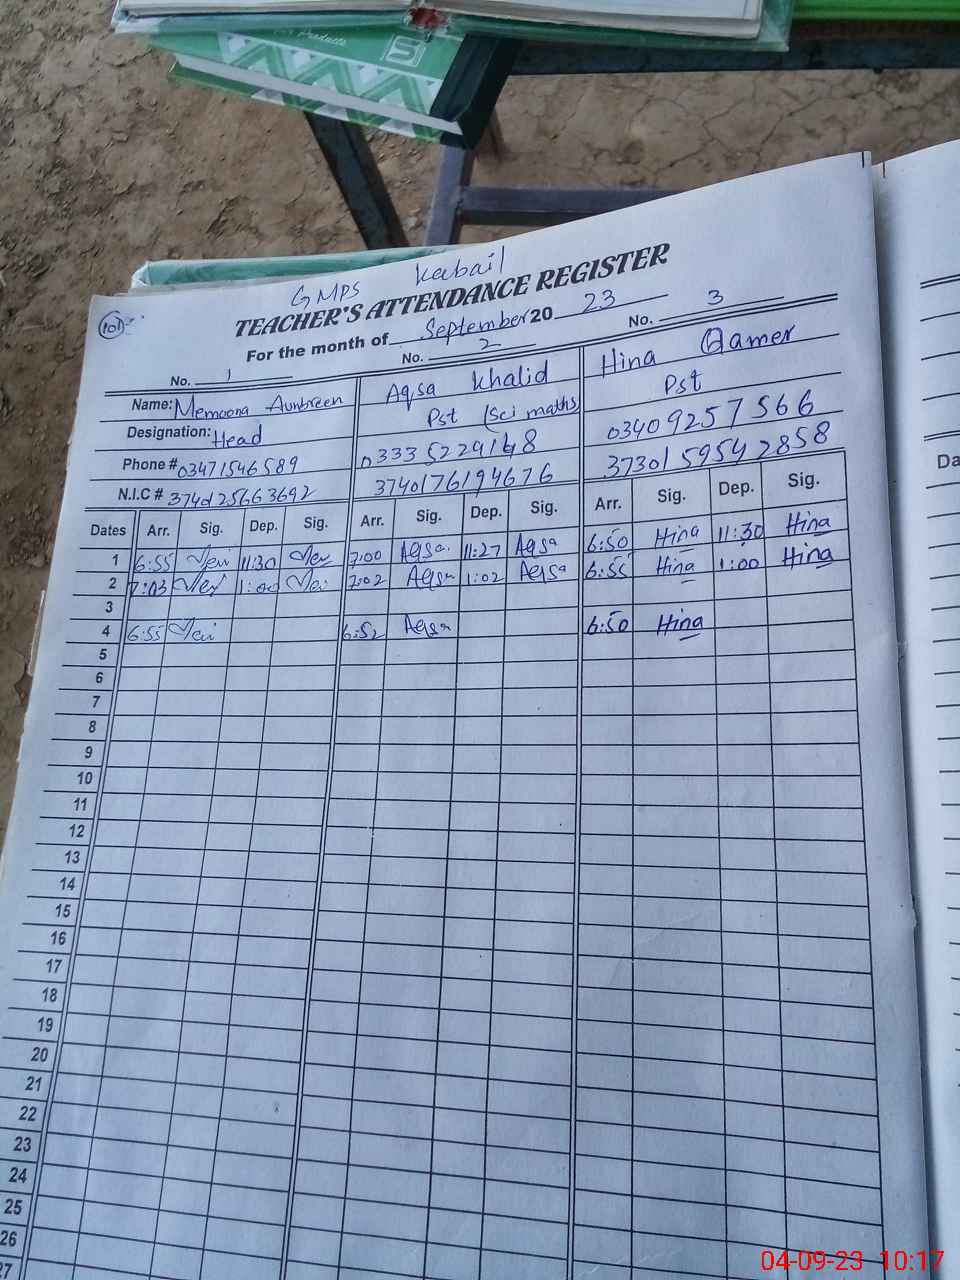 Products
S
GMPS Kabail
101
TEACHER'S ATTENDANCE REGISTER
For the month of September 2023
No. 1 No. 2 No. 3
Name: Memoona Aunbreen Aqsa Khalid Hina Qamer
Designation: Head Pst (Sci maths) Pst
Phone # 03471546589 03335229148 03409257566
N.I.C # 3740125663692 3740176194676 3730159542858
Dates Arr. Sig. Dep. Sig. Arr. Sig. Dep. Sig. Arr. Sig. Dep. Sig.
1 6:55 11:30 7:00 Aqsa 11:27 Aqsa 6:50 Hina 11:30 Hina
2 7:03 1:00 7:02 Aqsa 1:02 Aqsa 6:55 Hina 1:00 Hina
3
4 6:55 6:52 Aqsa 6:50 Hina
5
6
7
8
9
10
11
12
13
14
15
16
17
18
19
20
21
22
23
24
25
26
27
Da
04-09-23 10:17